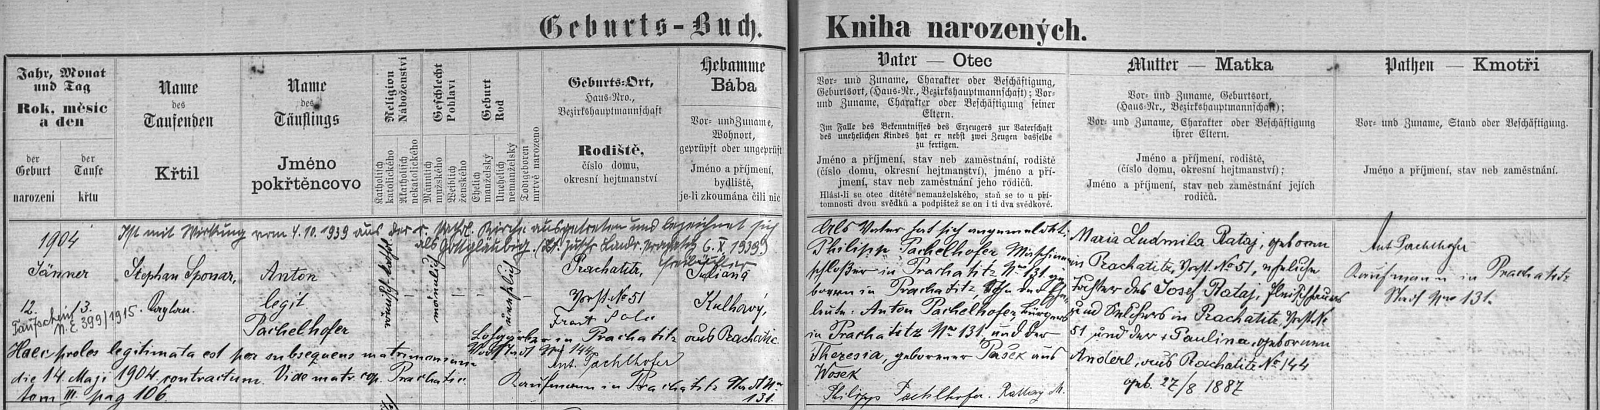 Geburts-Buch.
Kniha narozených.
Jahr, Monat
und Tag
Rok, měsíc
a den
der
Geburt
narození
der
Taufe
křtu
Name
des
Taufenden
Křtil
Name
des
Täuflings
Jméno
pokřtěncovo
Religion
Náboženství
Katholisch
katolického
nekatolického
Geschlecht
Pohlaví
Männlich
mužského
Weiblich
ženského
Geburt
Rod
Ehelich
manželský
Unehelich
nemanželský
Todtgeboren
mrtvě narozeno
Geburts-Ort,
Haus-Nro.,
Bezirkshauptmannschaft
Rodiště,
číslo domu,
okresní hejtmanství
Hebamme
Bába
Vor- und Zuname,
Wohnort,
geprüft oder ungeprüft
Jméno a příjmení,
bydliště,
je-li zkoumána čili nic
Vater — Otec
Vor- und Zuname, Charakter oder Beschäftigung,
Geburtsort, (Haus-Nr., Bezirkshauptmannschaft); Vor-
und Zuname, Charakter oder Beschäftigung seiner
Eltern.
Im Falle des Bekenntnisses des Erzeugers zur Vaterschaft
des unehelichen Kindes hat er nebst zwei Zeugen dasselbe
zu fertigen.
Jméno a příjmení, stav neb zaměstnání, rodiště
(číslo domu, okresní hejtmanství), jméno a pří-
jmení, stav neb zaměstnání jeho rodičů.
Hlásí-li se otec dítěte nemanželského, staň se to u pří-
tomnosti dvou svědků a podpiš se on i ti dva svědkové.
Mutter — Matka
Vor- und Zuname, Geburtsort,
(Haus-Nr., Bezirkshauptmannschaft);
Vor- und Zuname, Charakter oder Beschäftigung
ihrer Eltern.
Jméno a příjmení, rodiště,
(číslo domu, okresní hejtmanství);
Jméno a příjmení, stav neb zaměstnání jejích
rodičů.
Pathen — Kmotři
Vor- und Zuname, Stand oder Beschäftigung.
Jméno a příjmení, stav neb zaměstnání.
Ist mit Wirkung vom 4.10.1939 aus der r. kathol. Kirche ausgetreten und bezeichnet sich
als Gottgläubig
6. X 1939
1904
Jänner
12. 13.
Taufschein
N.E. 399/1915.
Stephan Sponar,
Kaplan.
Anton
legit
Pachelhofer
männlich
unehelich
Prachatitz,
Vorst. No 51
in Prachatitz
Juliana
Kulhavý,
aus Prachatic
Ant. Pachlhofer
Kaufmann in Prachatitz Stadt Nro
131.
Haec proles legitimata est per subsequens matrimonium
die 14 Maji 1904 contractum. Vide matr. cop. Prachatic
tom III pag 106.
Als Vater hat sich angemeldet:
Philipp Pachelhofer, Maschinen-
schloßer in Prachatitz Nro 131 ge-
boren in Prachatitz
leute: Anton Pachelhofer, Bürgers
in Prachatitz Nro 131 und der
Theresia, geborener Pašek aus
Wosek
Philipp Pachlhofer.
Maria Ludmila Rataj, geboren
in Prachatitz, Vorst. No 51, eheliche
Tochter des Josef Rataj, Fleischhauers
und Selchers in Prachatitz Vorst. No
51 und der Paulina, geborenen
Anderl, aus Prachatitz No 144
geb. 27/8 1887
Ant Pachlhofer
Kaufmann in Prachatitz
Stadt Nro 131.